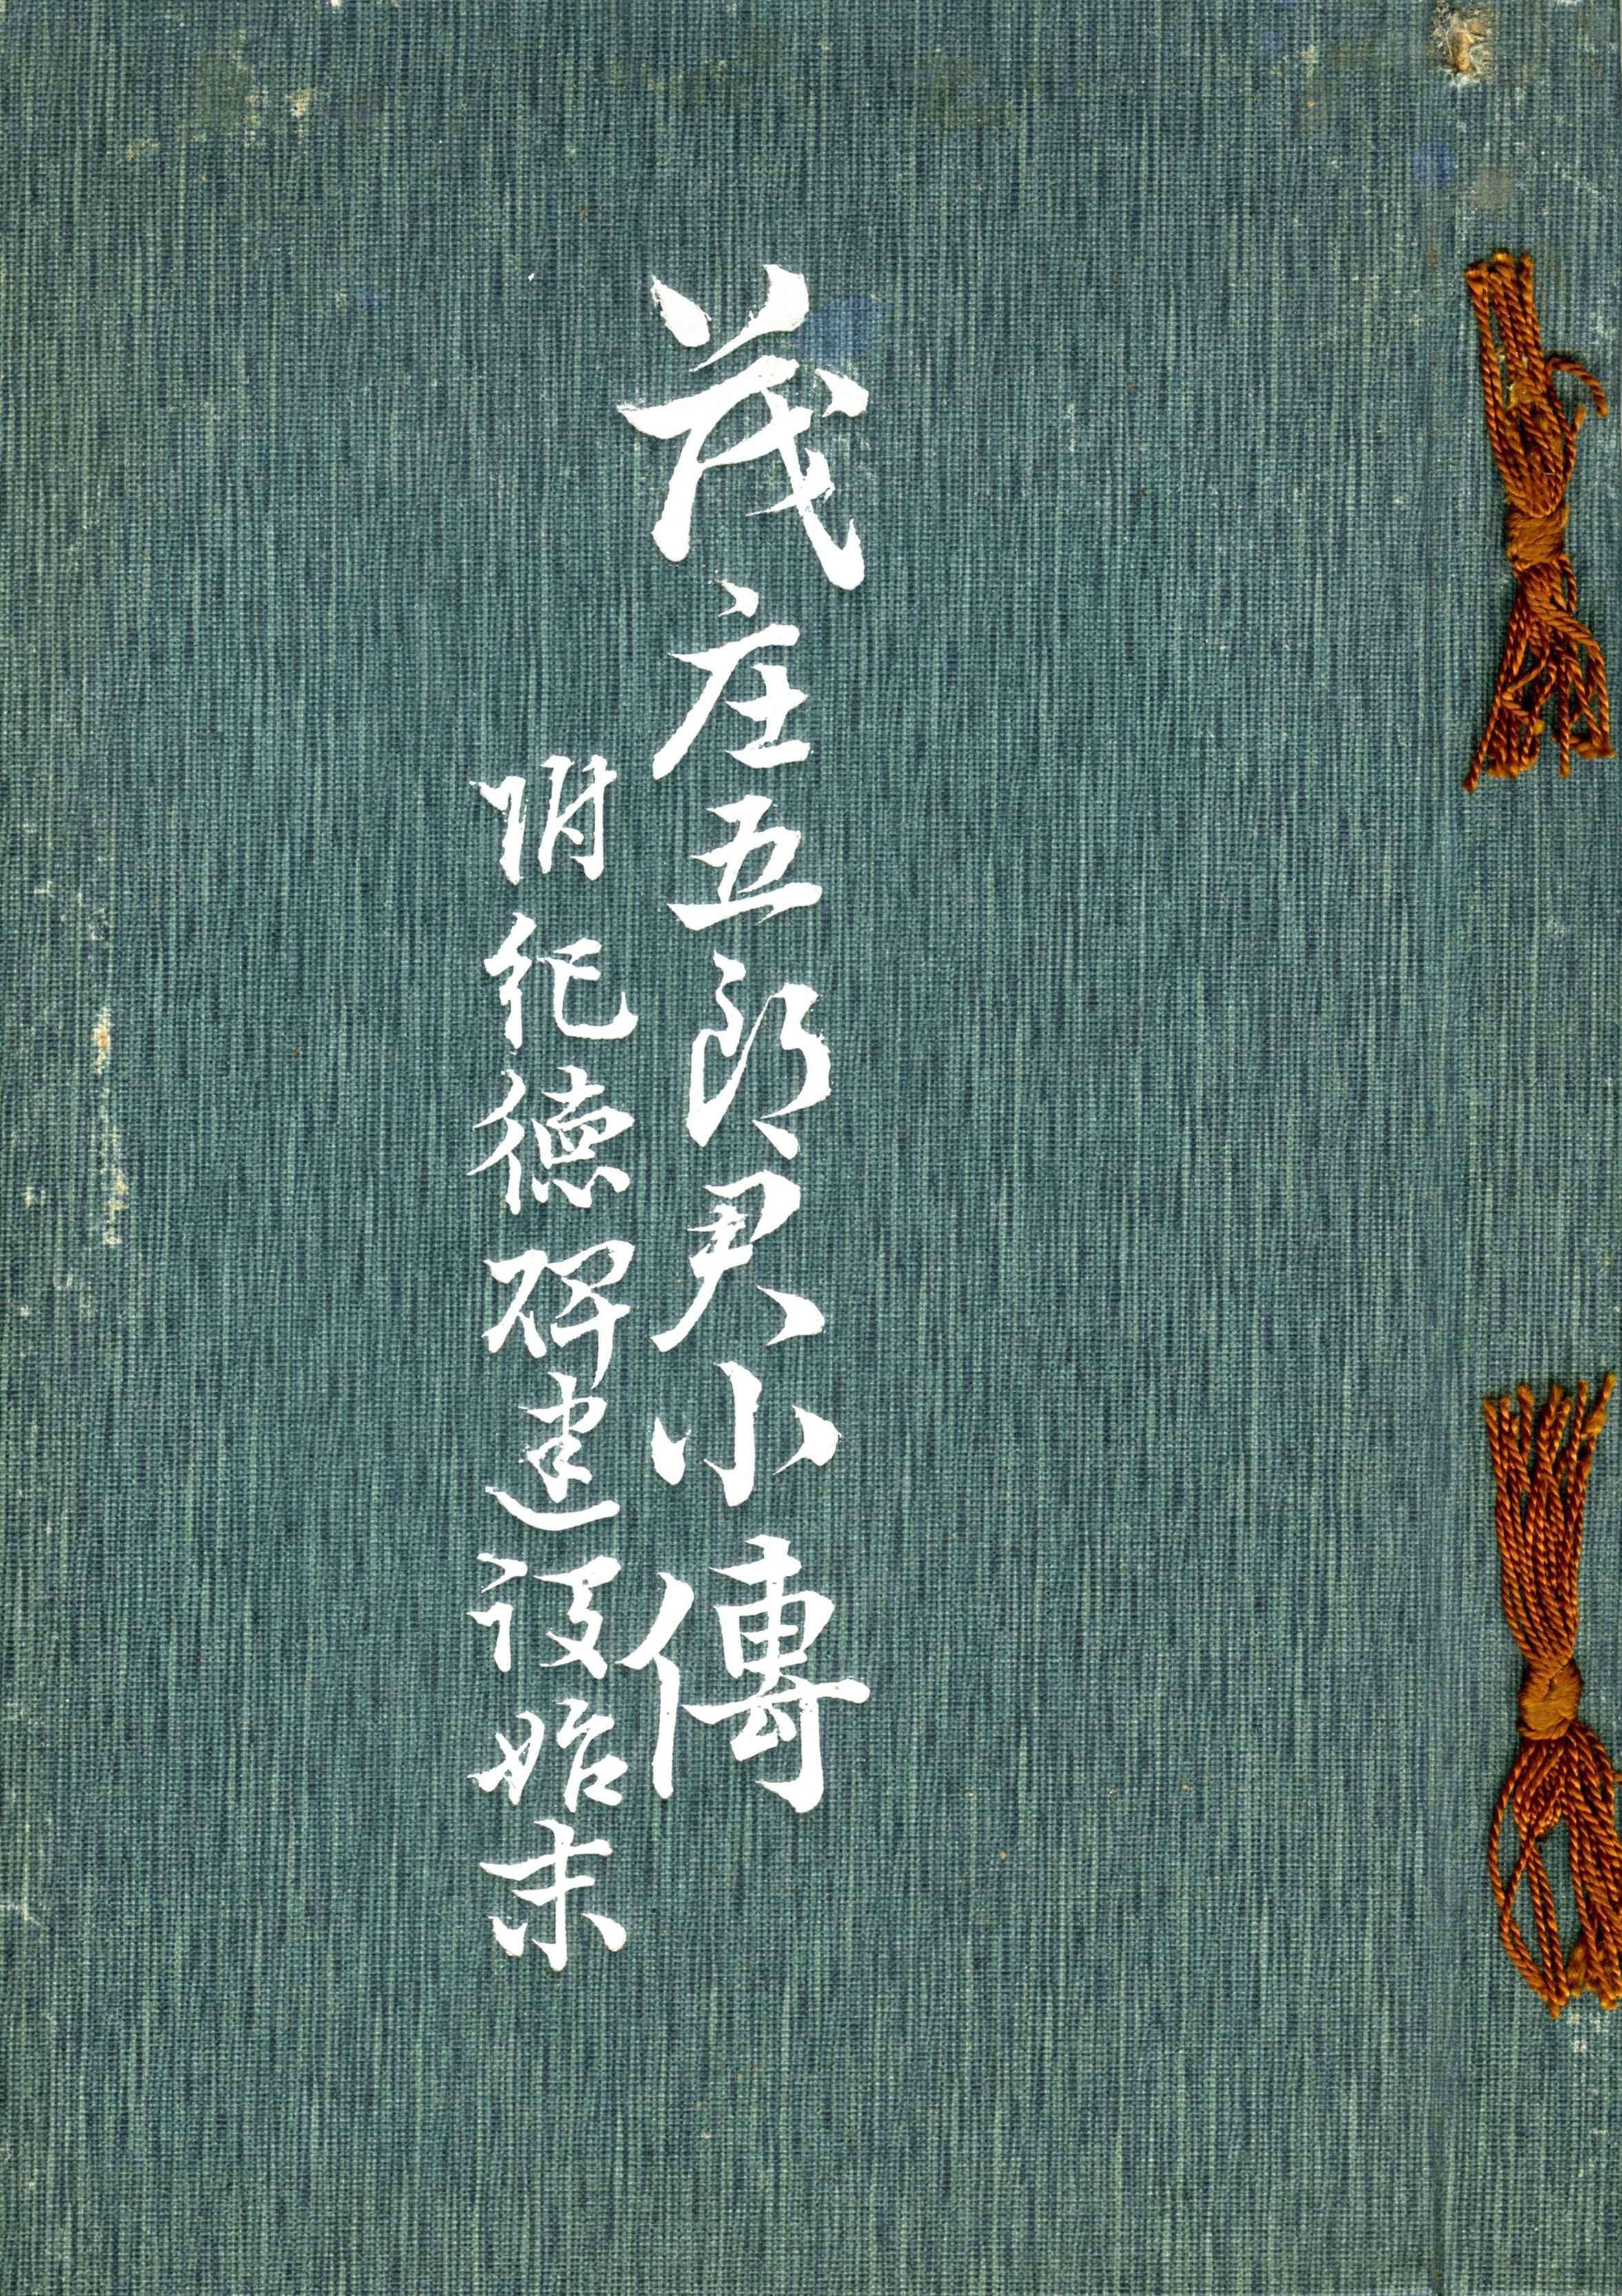 茂庄五郎君小傳
附紀德碑建設始末